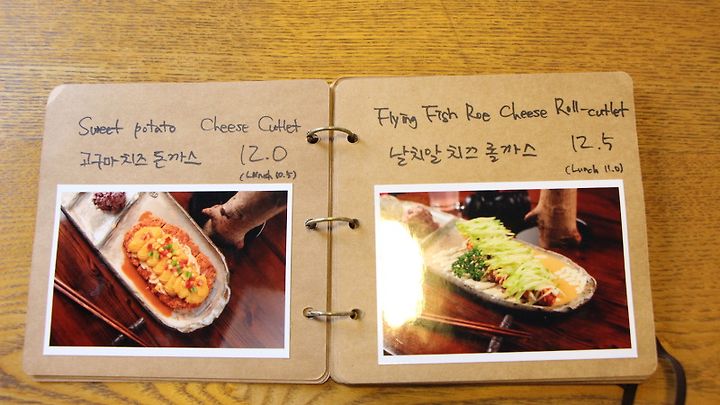 Sweet potato Cheese Cutlet
고구마치즈 돈까스 12.0
(Lunch 10.5)
Flying Fish Roe Cheese Roll-cutlet
날치알 치즈 롤까스 12.5
(Lunch 11.0)